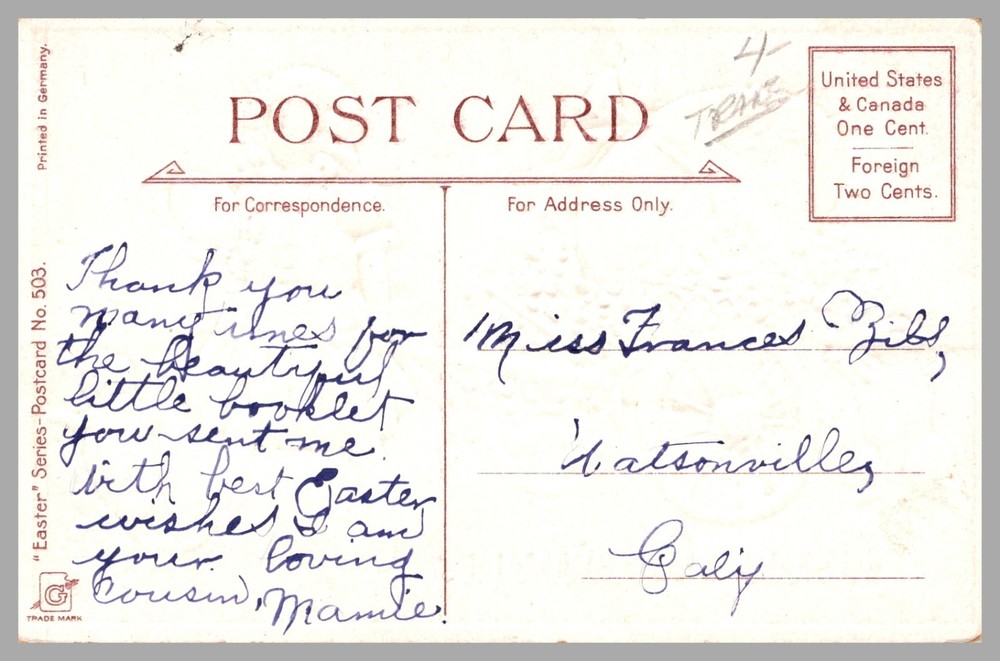 Printed in Germany.
4
POST CARD
United States
& Canada
One Cent.
Foreign
Two Cents.
For Correspondence.
For Address Only.
"Easter" Series-Postcard No. 503.
Thank you
many imes for
the beautiful
little booklet
you sent me.
With best Easter
wishes I am
your loving
cousin, Mamie.
Miss Frances
Watsonville,
Calif
G
TRADE MARK